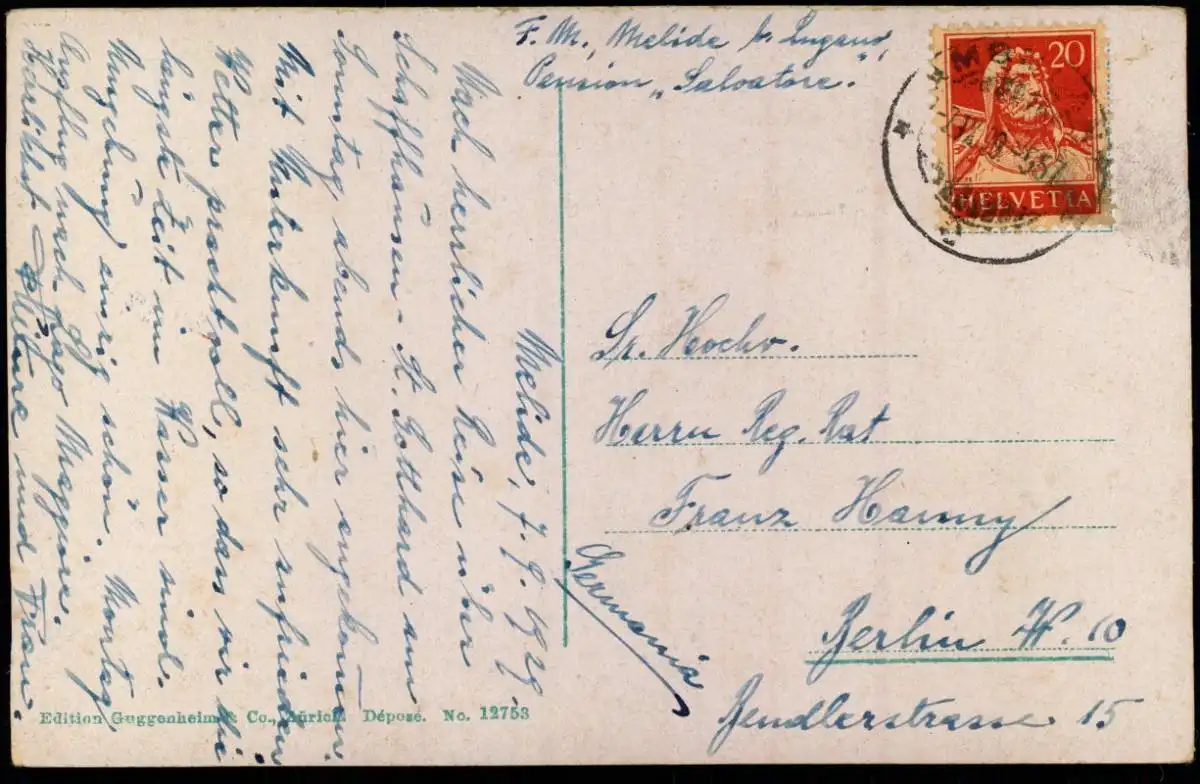 F. M., Melide b. Lugano,
Pension „Salvatore.
Melide, 7. 9. 1929.
Nach herrlicher Reise über
Schaffhausen - St. Gotthard am
Sonntag abends hier angekommen.
Mit Unterkunft sehr zufrieden
Wetter prachtvoll, so dass wir die
längste Zeit im Wasser sind.
Umgebung einzig schön. Montag
Ausflug nach Lago Maggiore.
Herzlichst und Frau.
20
HELVETIA
Sr. Hochw.
Herrn Reg. Rat
Franz Hanny
Germania
Berlin W. 10
Bendlerstrasse 15
Edition Guggenheim & Co., Zürich. Déposé. No. 12753